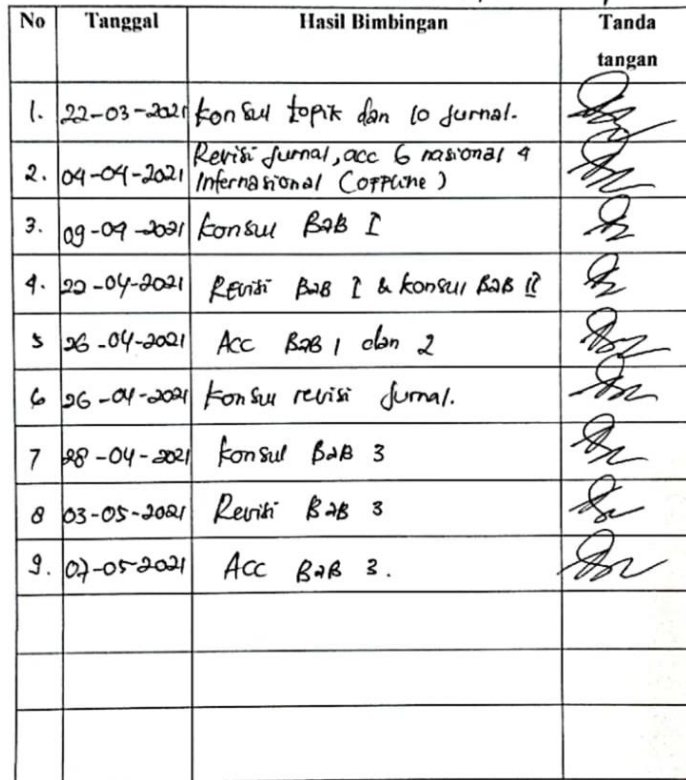 No Tanggal Hasil Bimbingan Tanda tangan
1. 22-03-2021 konsul topik dan 10 Jurnal.
2. 04-04-2021 Revisi Jurnal, acc 6 nasional 4
Internasional (offline)
3. 09-04-2021 konsul BAB I
4. 22-04-2021 Revisi BAB I & konsul BAB II
5 26-04-2021 Acc BAB 1 dan 2
6 26-04-2021 konsul revisi Jurnal.
7 28-04-2021 konsul BAB 3
8 03-05-2021 Revisi BAB 3
9. 07-05-2021 Acc BAB 3.